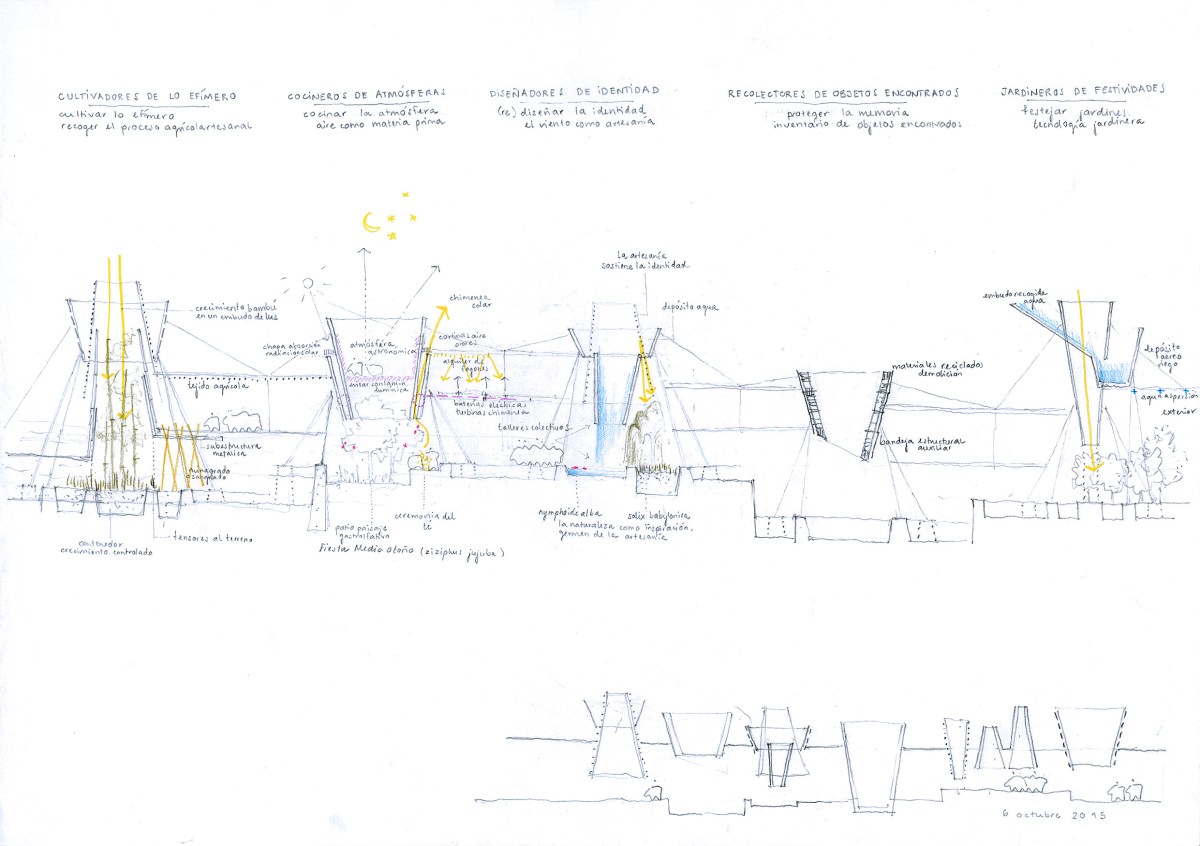 CULTIVADORES DE LO EFÍMERO
cultivar lo efímero
recoger el proceso agrícolartesanal
COCINEROS DE ATMÓSFERAS
cocinar la atmósfera
aire como materia prima
DISEÑADORES DE IDENTIDAD
(re) diseñar la identidad
el viento como artesanía
RECOLECTORES DE OBJETOS ENCONTRADOS
proteger la memoria
inventario de objetos encontrados
JARDINEROS DE FESTIVIDADES
festejar jardines
tecnología jardinera
crecimiento bambú
en un embudo de luz
tejido agrícola
subestructura
metálica
contenedor
crecimiento controlado
tensores al terreno
chapa absorsión
radiación solar
atmósfera
gastronómica
evitar contamin.
lumínica
chimenea
solar
cortinas aire
olores
alquiler de
fogones
baterías eléctricas
turbinas chimenea
patio paisaje
gastrolfativo
ceremonia del
té
Fiesta Medio Otoño (ziziphus jujuba)
La artesanía
sostiene la identidad
depósito agua
talleres colectivos
nymphoide alba
la naturaleza como inspiración,
germen de la artesanía
salix babylonica
materiales reciclados
demolición
bandeja estructural
auxiliar
embudo recogida
agua
depósito
aéreo
riego
agua aspersión
exterior
6 octubre 2015